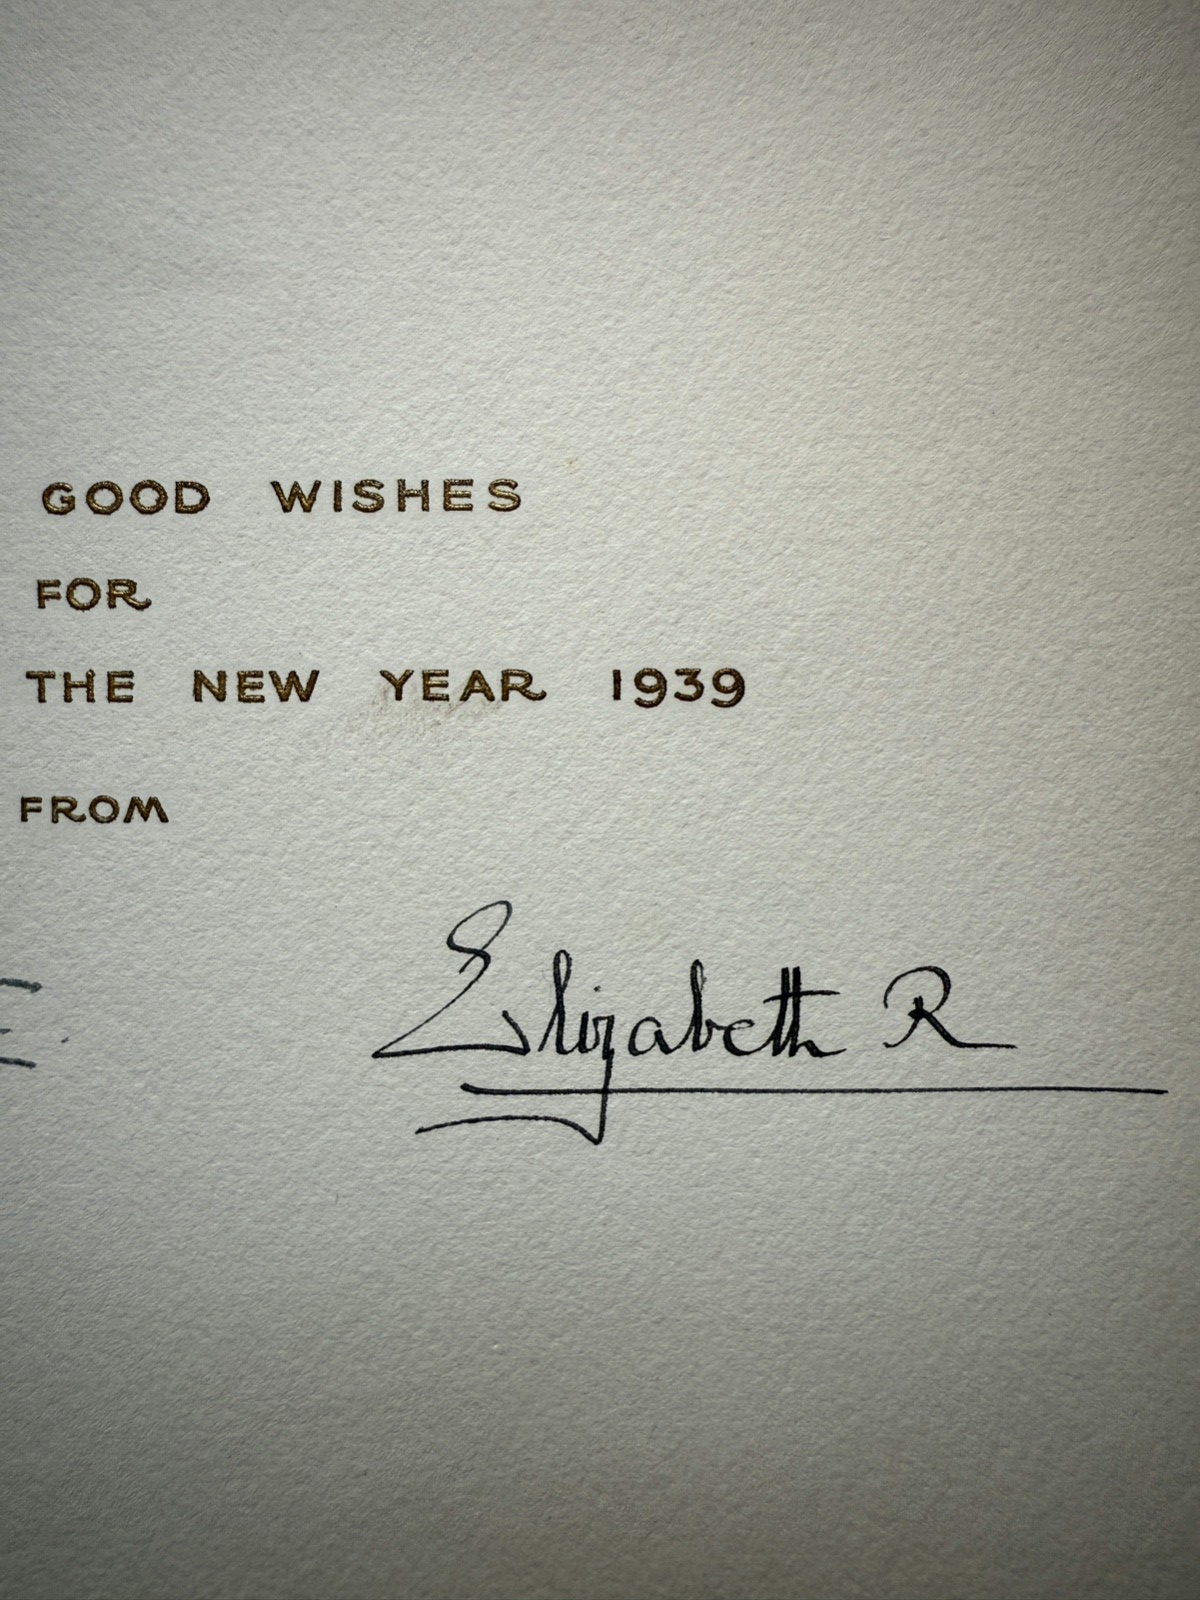 GOOD WISHES
FOR
THE NEW YEAR 1939
FROM
Elizabeth R